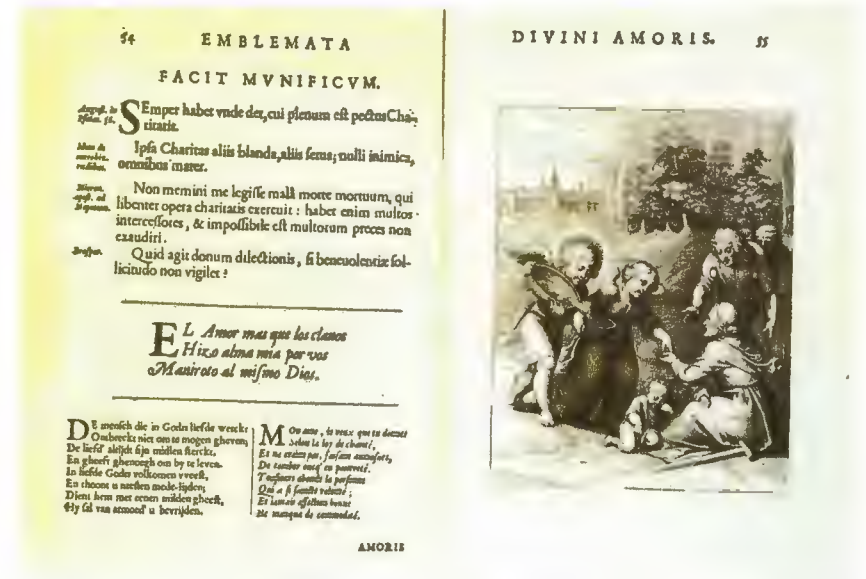 54 EMBLEMATA
FACIT MVNIFICVM.
August. in
Psalm. 36.
SEmper habet vnde det, cui plenum eſt pectus Cha-
ritatis.
Idem de
rudibus.
Ipſa Charitas aliis blanda, aliis ſeuera; nulli inimica,
omnibus mater.
Non memini me legiſſe malâ morte mortuum, qui
libenter opera charitatis exercuit: habet enim multos
interceſſores, & impoſſibile eſt multorum preces non
exaudiri.
Proſper.
Quid agit donum dilectionis, ſi beneuolentiæ ſol-
licitudo non vigilet?
EL Amor mas que los clauos
Hizo alma mia por vos
Maniroto al miſmo Dios.
DE menſch die in Godts liefde werckt
Ontbreckt niet om te mogen gheven;
De liefd' altijdt ſijn midlen ſterckt,
En gheeft ghenoegh om by te leven.
In liefde Godts volkomen vveeſt,
En thoont u naeſten mede-lijden;
Dient hem met eenen milden gheeſt,
Hy ſal van armoed' u bevrijden.
MOn ame, ie veux que tu donnes
Selon la loy de charité,
Et ne crains pas,
De tomber onq' en pauureté.
Touſiours abonde la perſonne
Qui a ſi ſaincte volonté;
Et iamais affection bonne
Ne manque de commodité.
AMORIS
DIVINI AMORIS. 55